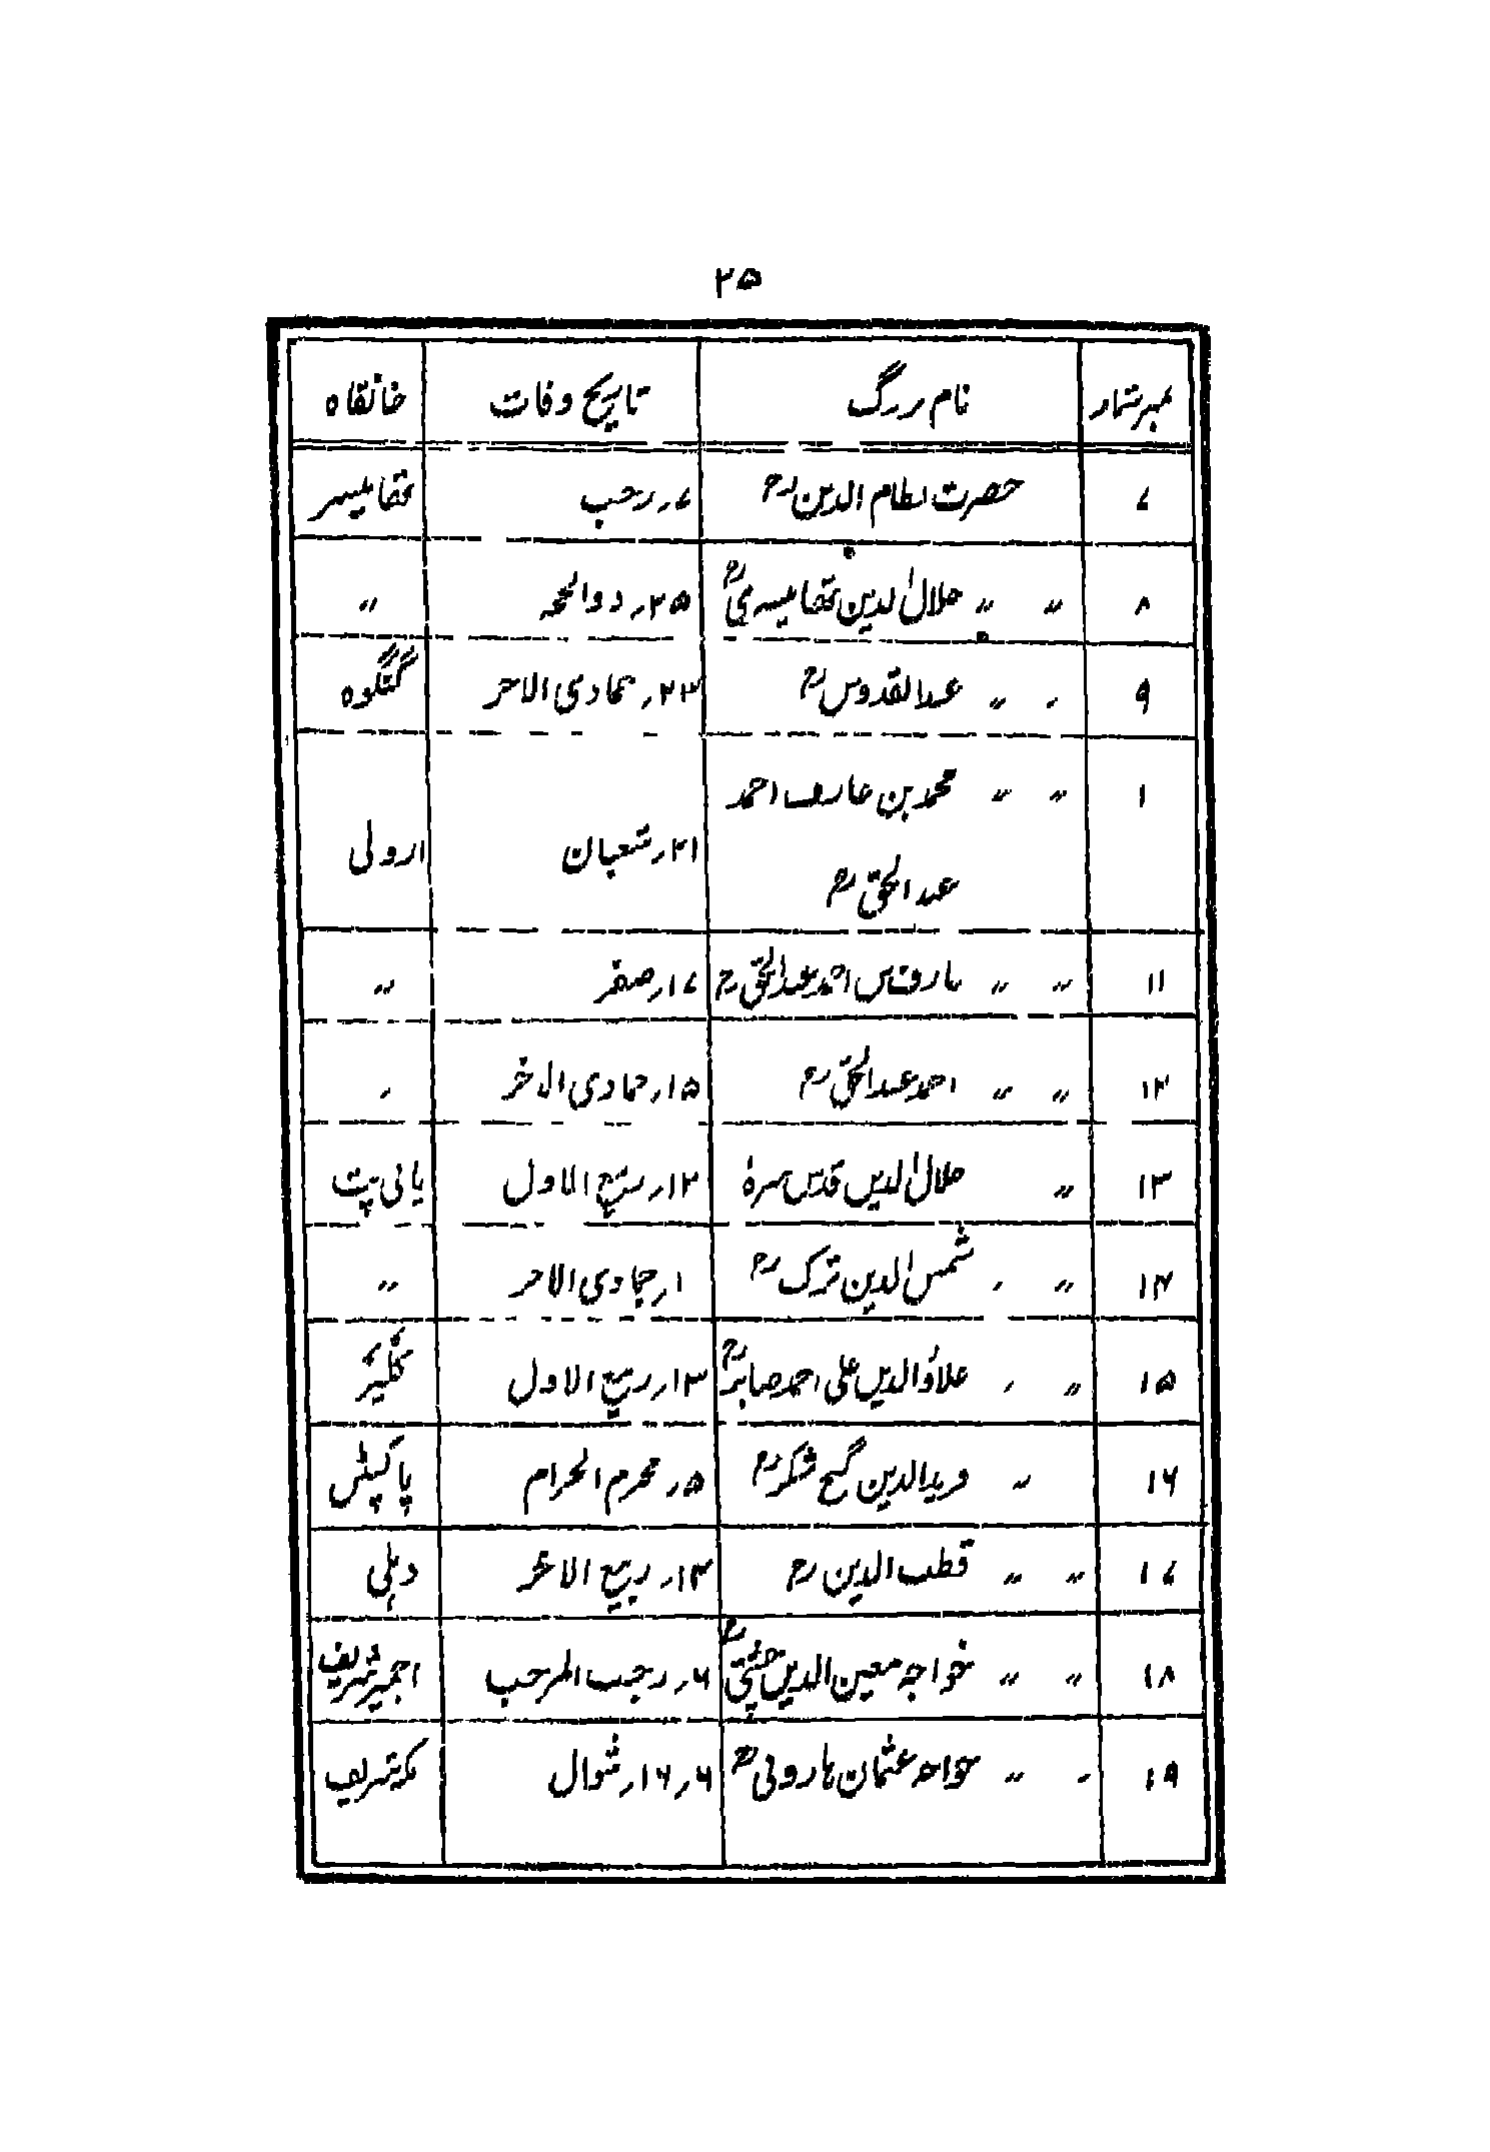 ۲۵
نمبر شمار نام بزرگ تاریخ وفات خانقاہ
۷ حضرت نظام الدین رح ۷؍ رجب تھانیسر
۸ 〃 〃 جلال الدین تھانیسری رح ۲۵؍ ذوالحجہ 〃
۹ 〃 〃 عبدالقدوس رح ۲۳؍ جمادی الاخر گنگوہ
۱ 〃 〃 محمد بن عارف احمد
عبدالحق رح ۲۱؍ شعبان ارولی
۱۱ 〃 〃 عارف بن احمد عبدالحق رح ۱۷؍ صفر 〃
۱۲ 〃 〃 احمد عبدالحق رح ۱۵؍ جمادی الاخر 〃
۱۳ 〃 جلال الدین قدس سرہٗ ۱۲؍ ربیع الاول پانی پت
۱۴ 〃 〃 شمس الدین ترک رح ۱؍ جمادی الاخر 〃
۱۵ 〃 〃 علاؤالدین علی احمد صابر رح ۱۳؍ ربیع الاول کلیر
۱۶ 〃 فریدالدین گنج شکر رح ۵؍ محرم الحرام پاکپٹن
۱۷ 〃 〃 قطب الدین رح ۱۴؍ ربیع الاخر دہلی
۱۸ 〃 〃 خواجہ معین الدین چشتی رح ۶؍ رجب المرجب اجمیر شریف
۱۹ 〃 〃 خواجہ عثمان ہارونی رح ۶؍ ۱۶؍ شوال مکہ شریف